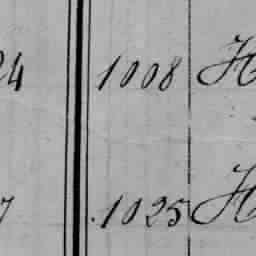 24 1008 H
7 1025 H